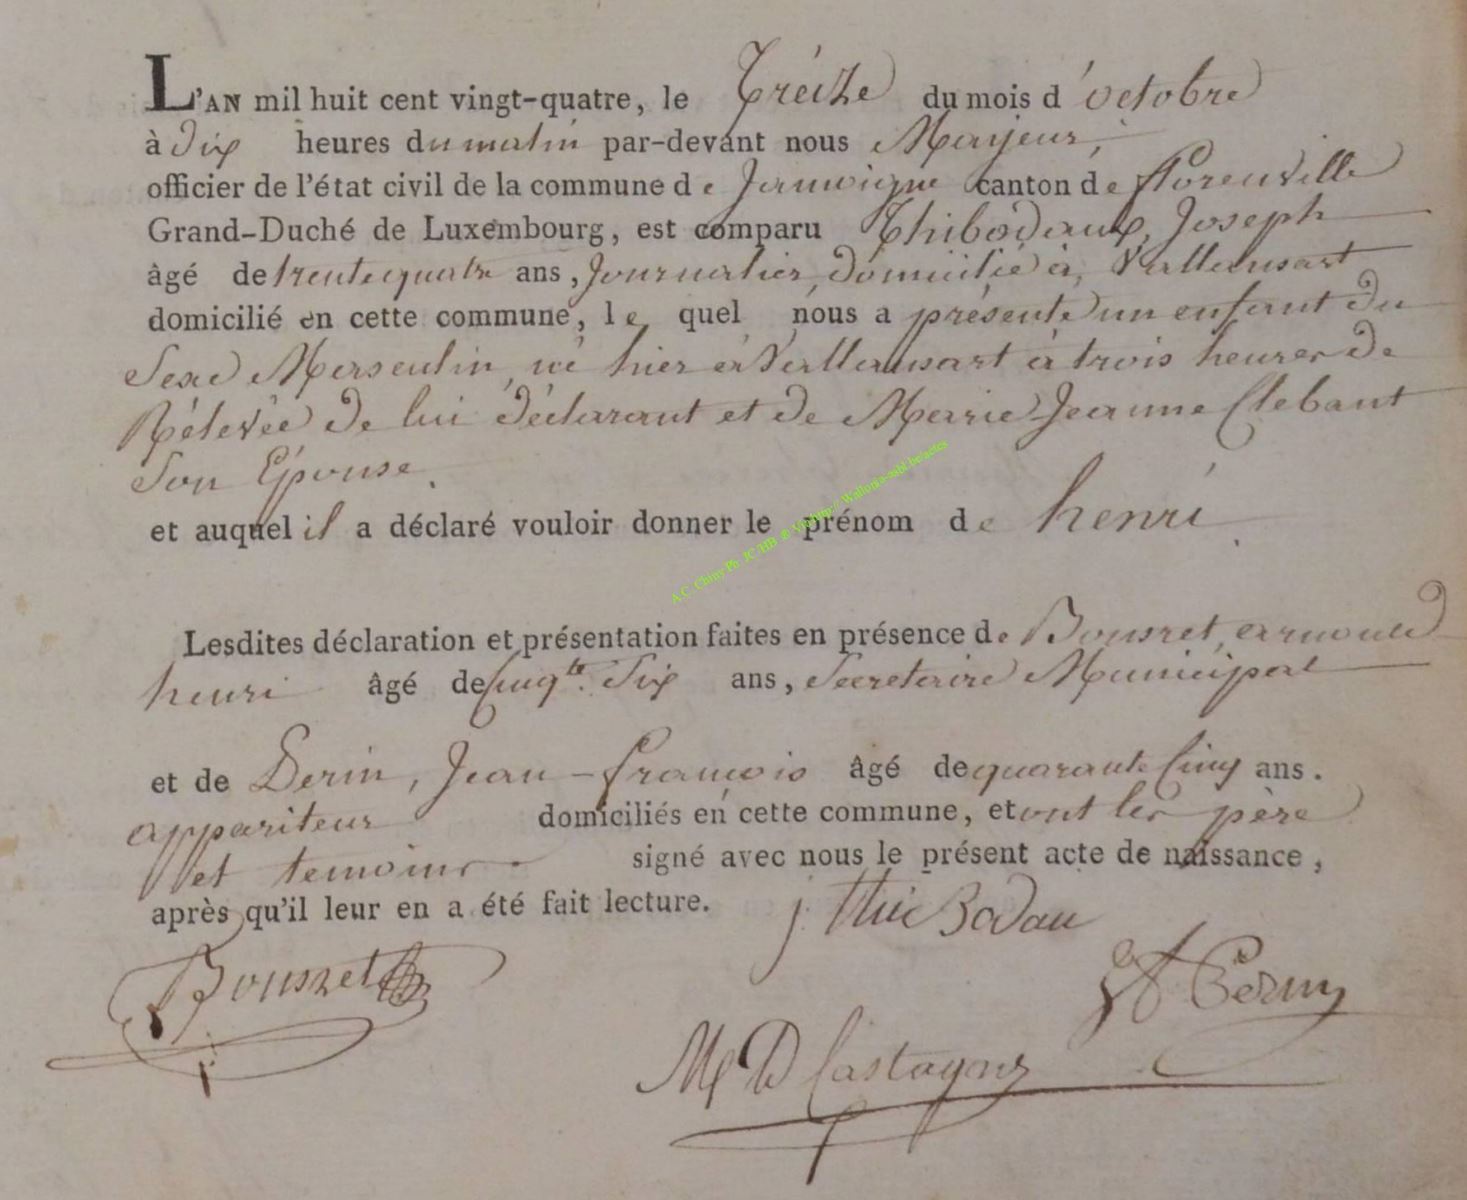 L'AN mil huit cent vingt-quatre, le Treize du mois d'octobre
à dix heures du matin par-devant nous Mayeur,
officier de l'état civil de la commune de Jamoigne canton de florenville
Grand-Duché de Luxembourg, est comparu Thibodaux, Joseph
âgé de trente quatre ans, Journalier, domicilié à Vallansart
domicilié en cette commune, le quel nous a présenté un enfant du
Sexe Masculin, né hier à Vallansart à trois heures de
Rélevée de lui déclarant et de Marie Jeanne Clebant
Son Epouse.
et auquel il a déclaré vouloir donner le prénom de henri.
A.C. Chiny Ph JC/HB © Wallonia-asbl.be/actes
Lesdites déclaration et présentation faites en présence de Bousret, arnould
henri âgé de Cinqte. Six ans, Secretaire Municipal
et de Perin, Jean-françois âgé de quarante Cinq ans.
appariteur domiciliés en cette commune, et ont les père
et temoins signé avec nous le présent acte de naissance,
après qu'il leur en a été fait lecture.
j. thieBodau
Bousret
Perin
M D Castagne